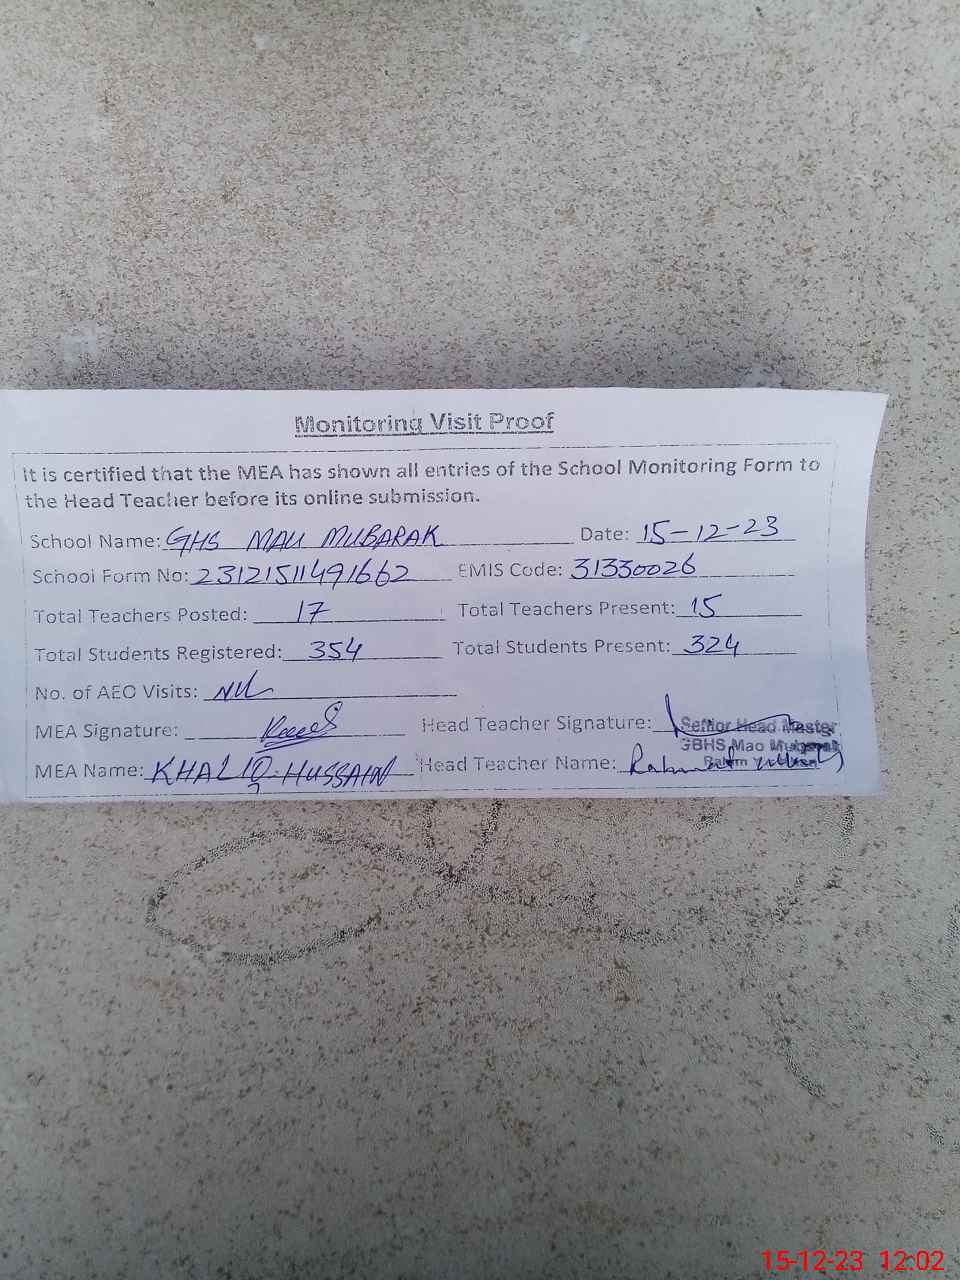 Monitoring Visit Proof
It is certified that the MEA has shown all entries of the School Monitoring Form to
the Head Teacher before its online submission.
School Name: GHS MAU MUBARAK Date: 15-12-23
School Form No: 23121511491662 EMIS Code: 31330026
Total Teachers Posted: 17 Total Teachers Present: 15
Total Students Registered: 354 Total Students Present: 324
No. of AEO Visits: Nil
MEA Signature: Head Teacher Signature: Senior Head Master
GBHS Mao Mubarak
MEA Name: KHALIQ HUSSAIN Head Teacher Name: Rahmat
Rahim Yar Khan
15-12-23 12:02